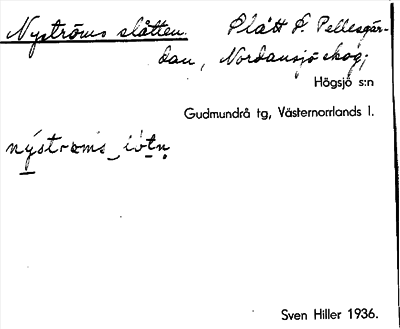 Nyströms slåtten. Slått P. Pellesgår-
dan, Nordansjö skog;
Högsjö s:n
Gudmundrå tg, Västernorrlands l.
nýstrœms
Sven Hiller 1936.